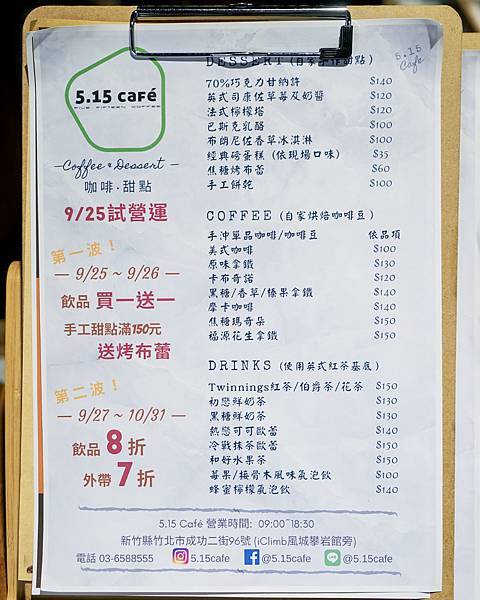 5.15 CAFé
FIVE FIFTEEN COFFEE
—Coffee & Dessert—
咖啡·甜點
9/25試營運
第一波！
— 9/25 ~ 9/26 —
飲品 買一送一
手工甜點滿150元
送烤布蕾
第二波！
— 9/27 ~ 10/31 —
飲品 8 折
外帶 7 折
DESSERT (自家手作甜點)
5.15
Cafe
70%巧克力甘納許 $140
英式司康佐草莓及奶醬 $120
法式檸檬塔 $120
巴斯克乳酪 $100
布朗尼佐香草冰淇淋 $100
經典磅蛋糕 (依現場口味) $35
焦糖烤布蕾 $60
手工餅乾 $100
COFFEE (自家烘焙咖啡豆)
手沖單品咖啡/咖啡豆 依品項
美式咖啡 $100
原味拿鐵 $130
卡布奇諾 $120
黑糖/香草/榛果拿鐵 $140
摩卡咖啡 $140
焦糖瑪奇朵 $150
福源花生拿鐵 $150
DRINKS (使用英式紅茶基底)
Twinnings紅茶/伯爵茶/花茶 $150
初戀鮮奶茶 $130
黑糖鮮奶茶 $130
熱戀可可歐蕾 $140
冷戰抹茶歐蕾 $150
和好水果茶 $150
莓果/接骨木風味氣泡飲 $100
蜂蜜檸檬氣泡飲 $140
5.15 Café 營業時間: 09:00~18:30
新竹縣竹北市成功二街96號 (iClimb風城攀岩館旁)
電話 03-6588555 @5.15cafe @5.15cafe LINE @5.15cafe